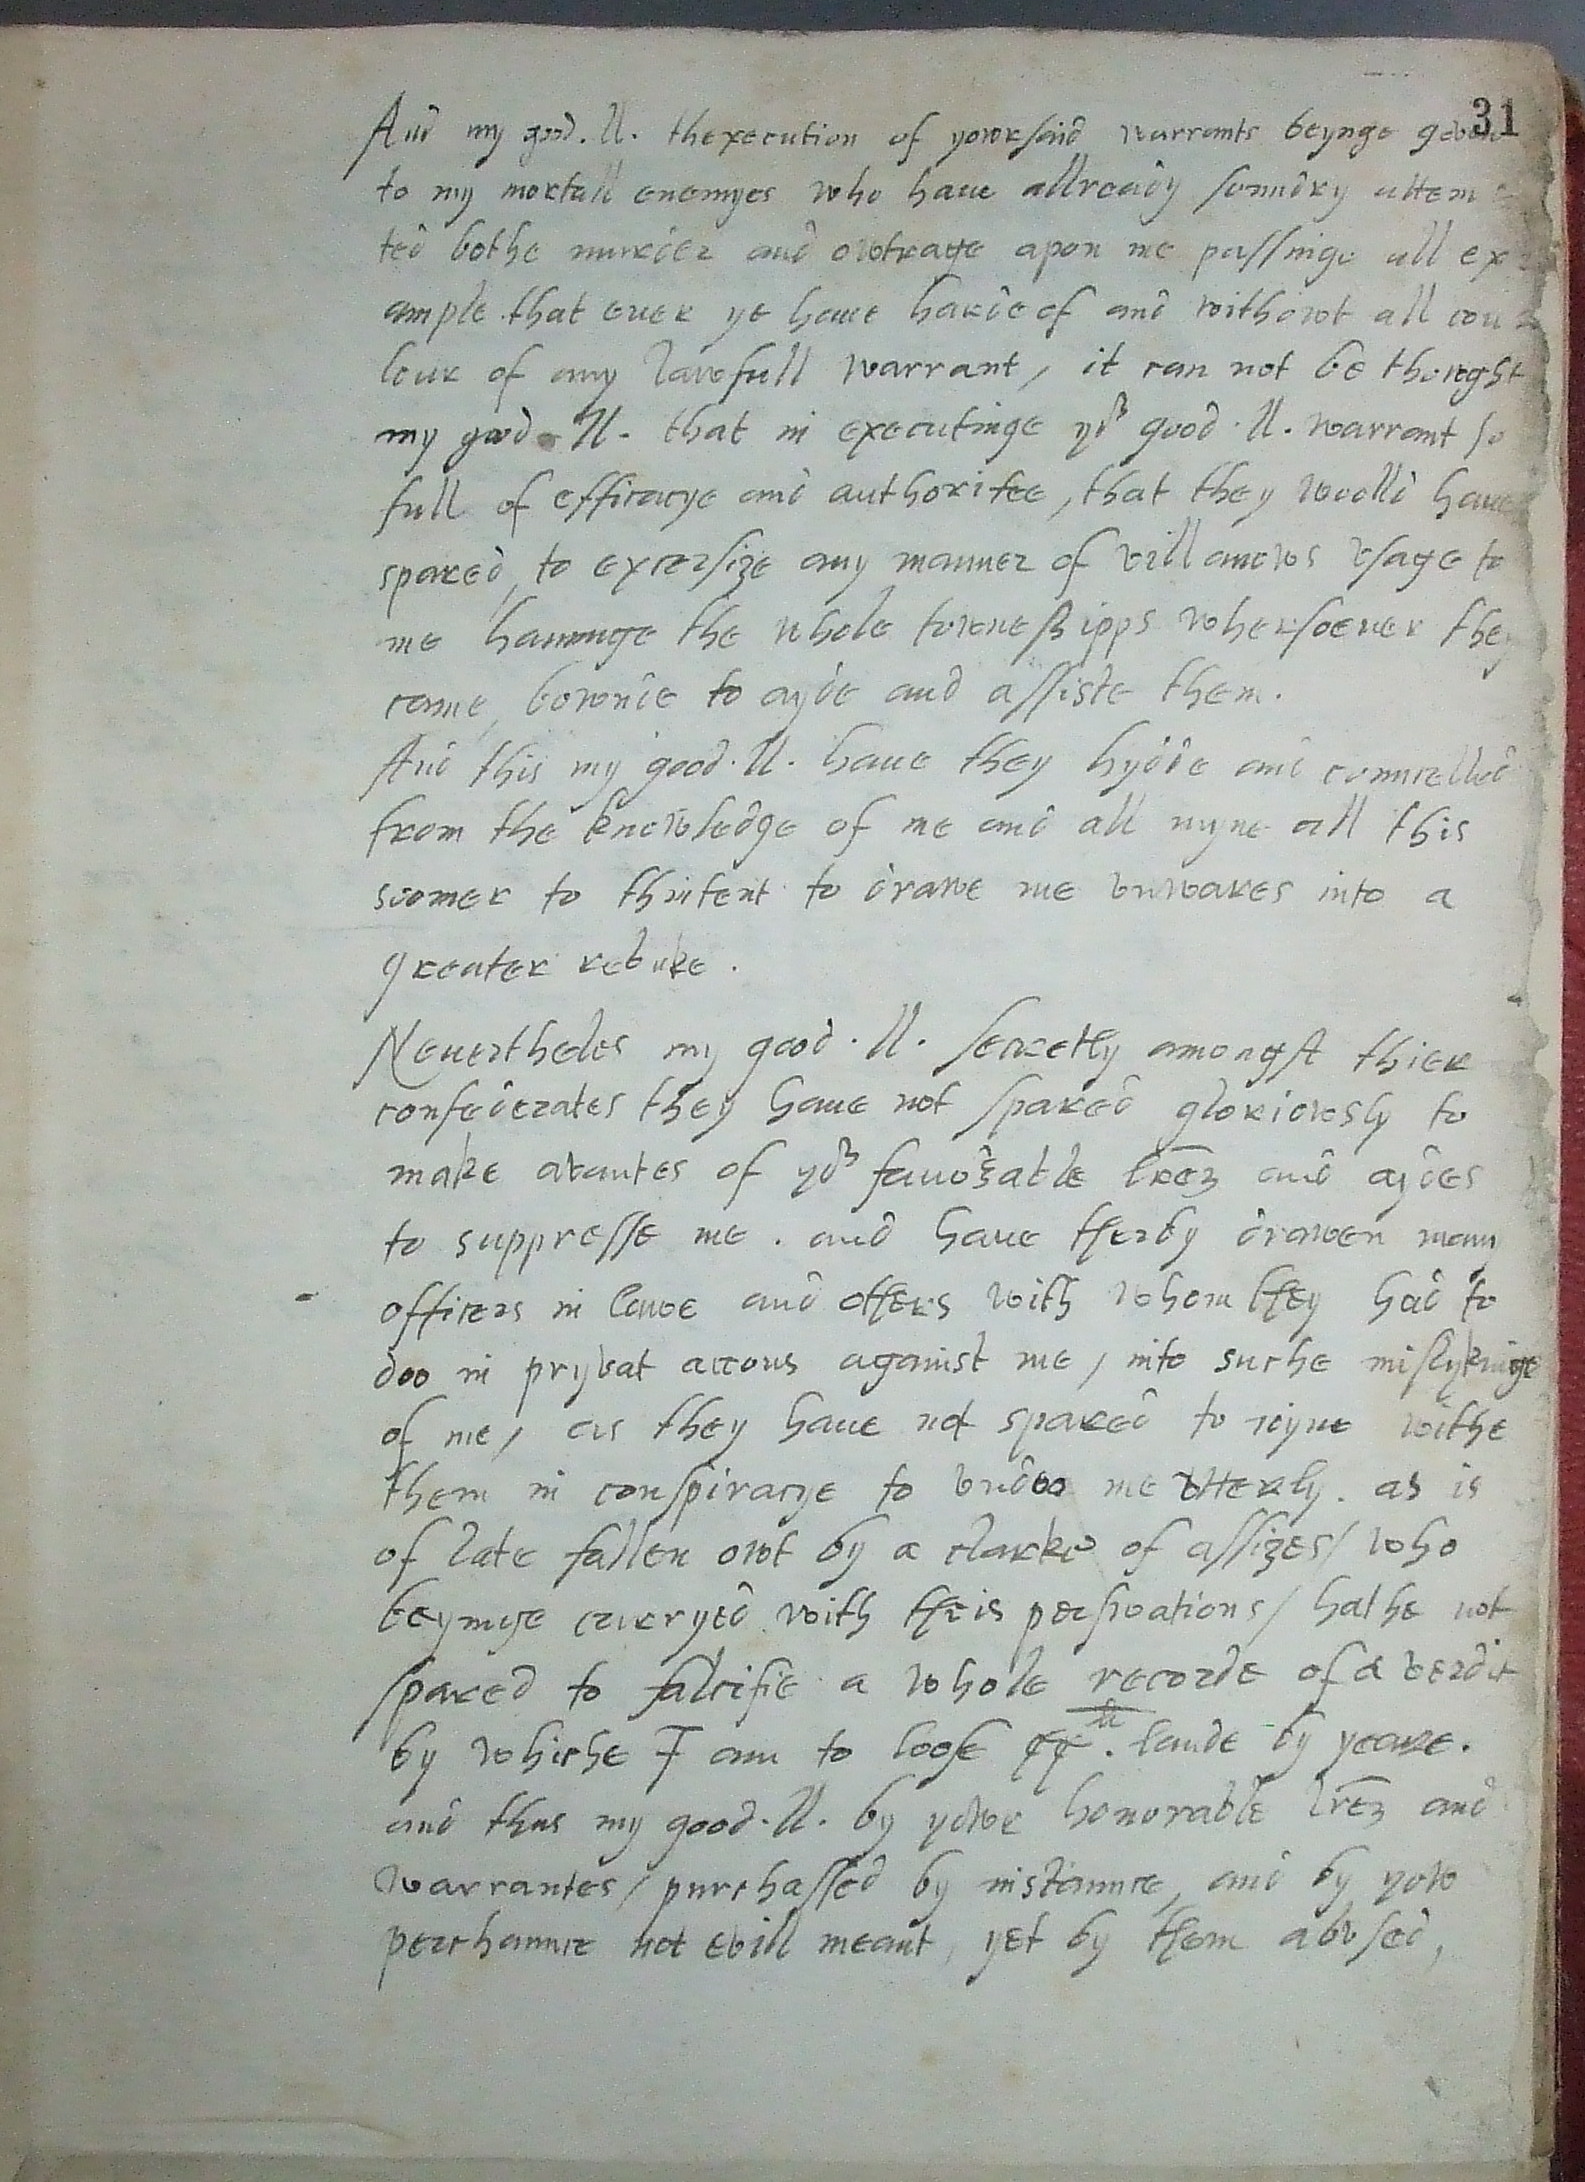 31
And my good .ll. thexecution of yowr said warrants beynge geven
to my mortall enemyes who haue allready sunndry attem
ted bothe murder and owtrage apon me passinge all ex
ample that euer ye haue harde of and withowt all cou
lour of any lawfull warrant, it can not be thowght
my good .ll. that in executinge yor good .ll. warrant so
full of efficacye and authoritee, that they woolld haue
spared, to excersize any manner of villanows vsage to
me havinge the whole towneshipps whersoever they
came, bownde to ayde and assiste them.
And this my good .ll. haue they hydde and conncelled
from the knowledge of me and all myne all this
soomer to thintent to drawe me vnwares into a
greater rebuke.
Neuertheles my good .ll. secretly amongst thier
confederates they haue not spared gloriowsly to
make avantes of yor fauorable lrez and aydes
to suppresse me. and haue therby drawen many
officers in lawe and others with whom they had to
doo in pryvat accons against me, into suche mislykinge
of me, as they haue not spared to ioyne withe
them in conspiracye to vndoo me vtterly. as is
of late fallen owt by a clarke of assizes, who
beynge carryed with theis perswations, hathe not
spared to falcifie a whole recorde of a verdit
by whiche I am to loose xxli. lande by yeare.
and thus my good .ll. by yowr honorable lrez and
warrantes, purchassed by instannce, and by yow
perchannce not evill meant, yet by them abvsed,